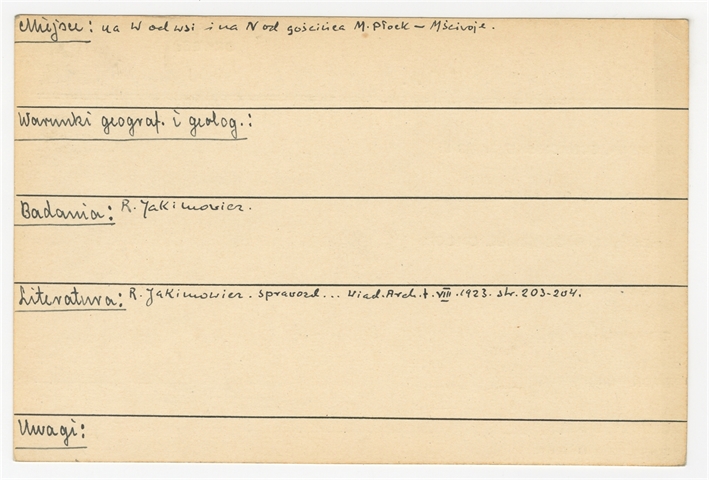 Miejsce: na W od wsi i na N od gościńca M. Płock – Mścivoje.
Warunki geograf. i geolog.:
Badania: R. Jakimowicz.
Literatura: R. Jakimowicz. sprawozd... Wiad. Arch. t. VIII. 1923. str. 203-204.
Uwagi: